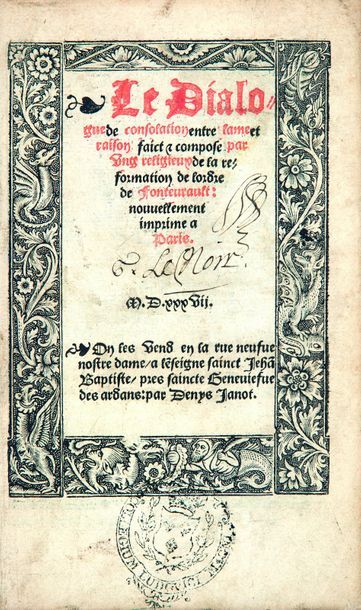 Le Dialo-
gue de consolation entre lame et
raison faict ⁊ compose par
Ung religieux de la re-
formation de lordre
de Fonteurault:
nouuellement
imprime a
Paris.
Le Noir
M.D.xxxVij.
On les Vend en la rue neufue
nostre dame/a lẽseigne sainct Jehã
Baptiste/pres saincte Geneuiefue
des ardans: par Denys Janot.